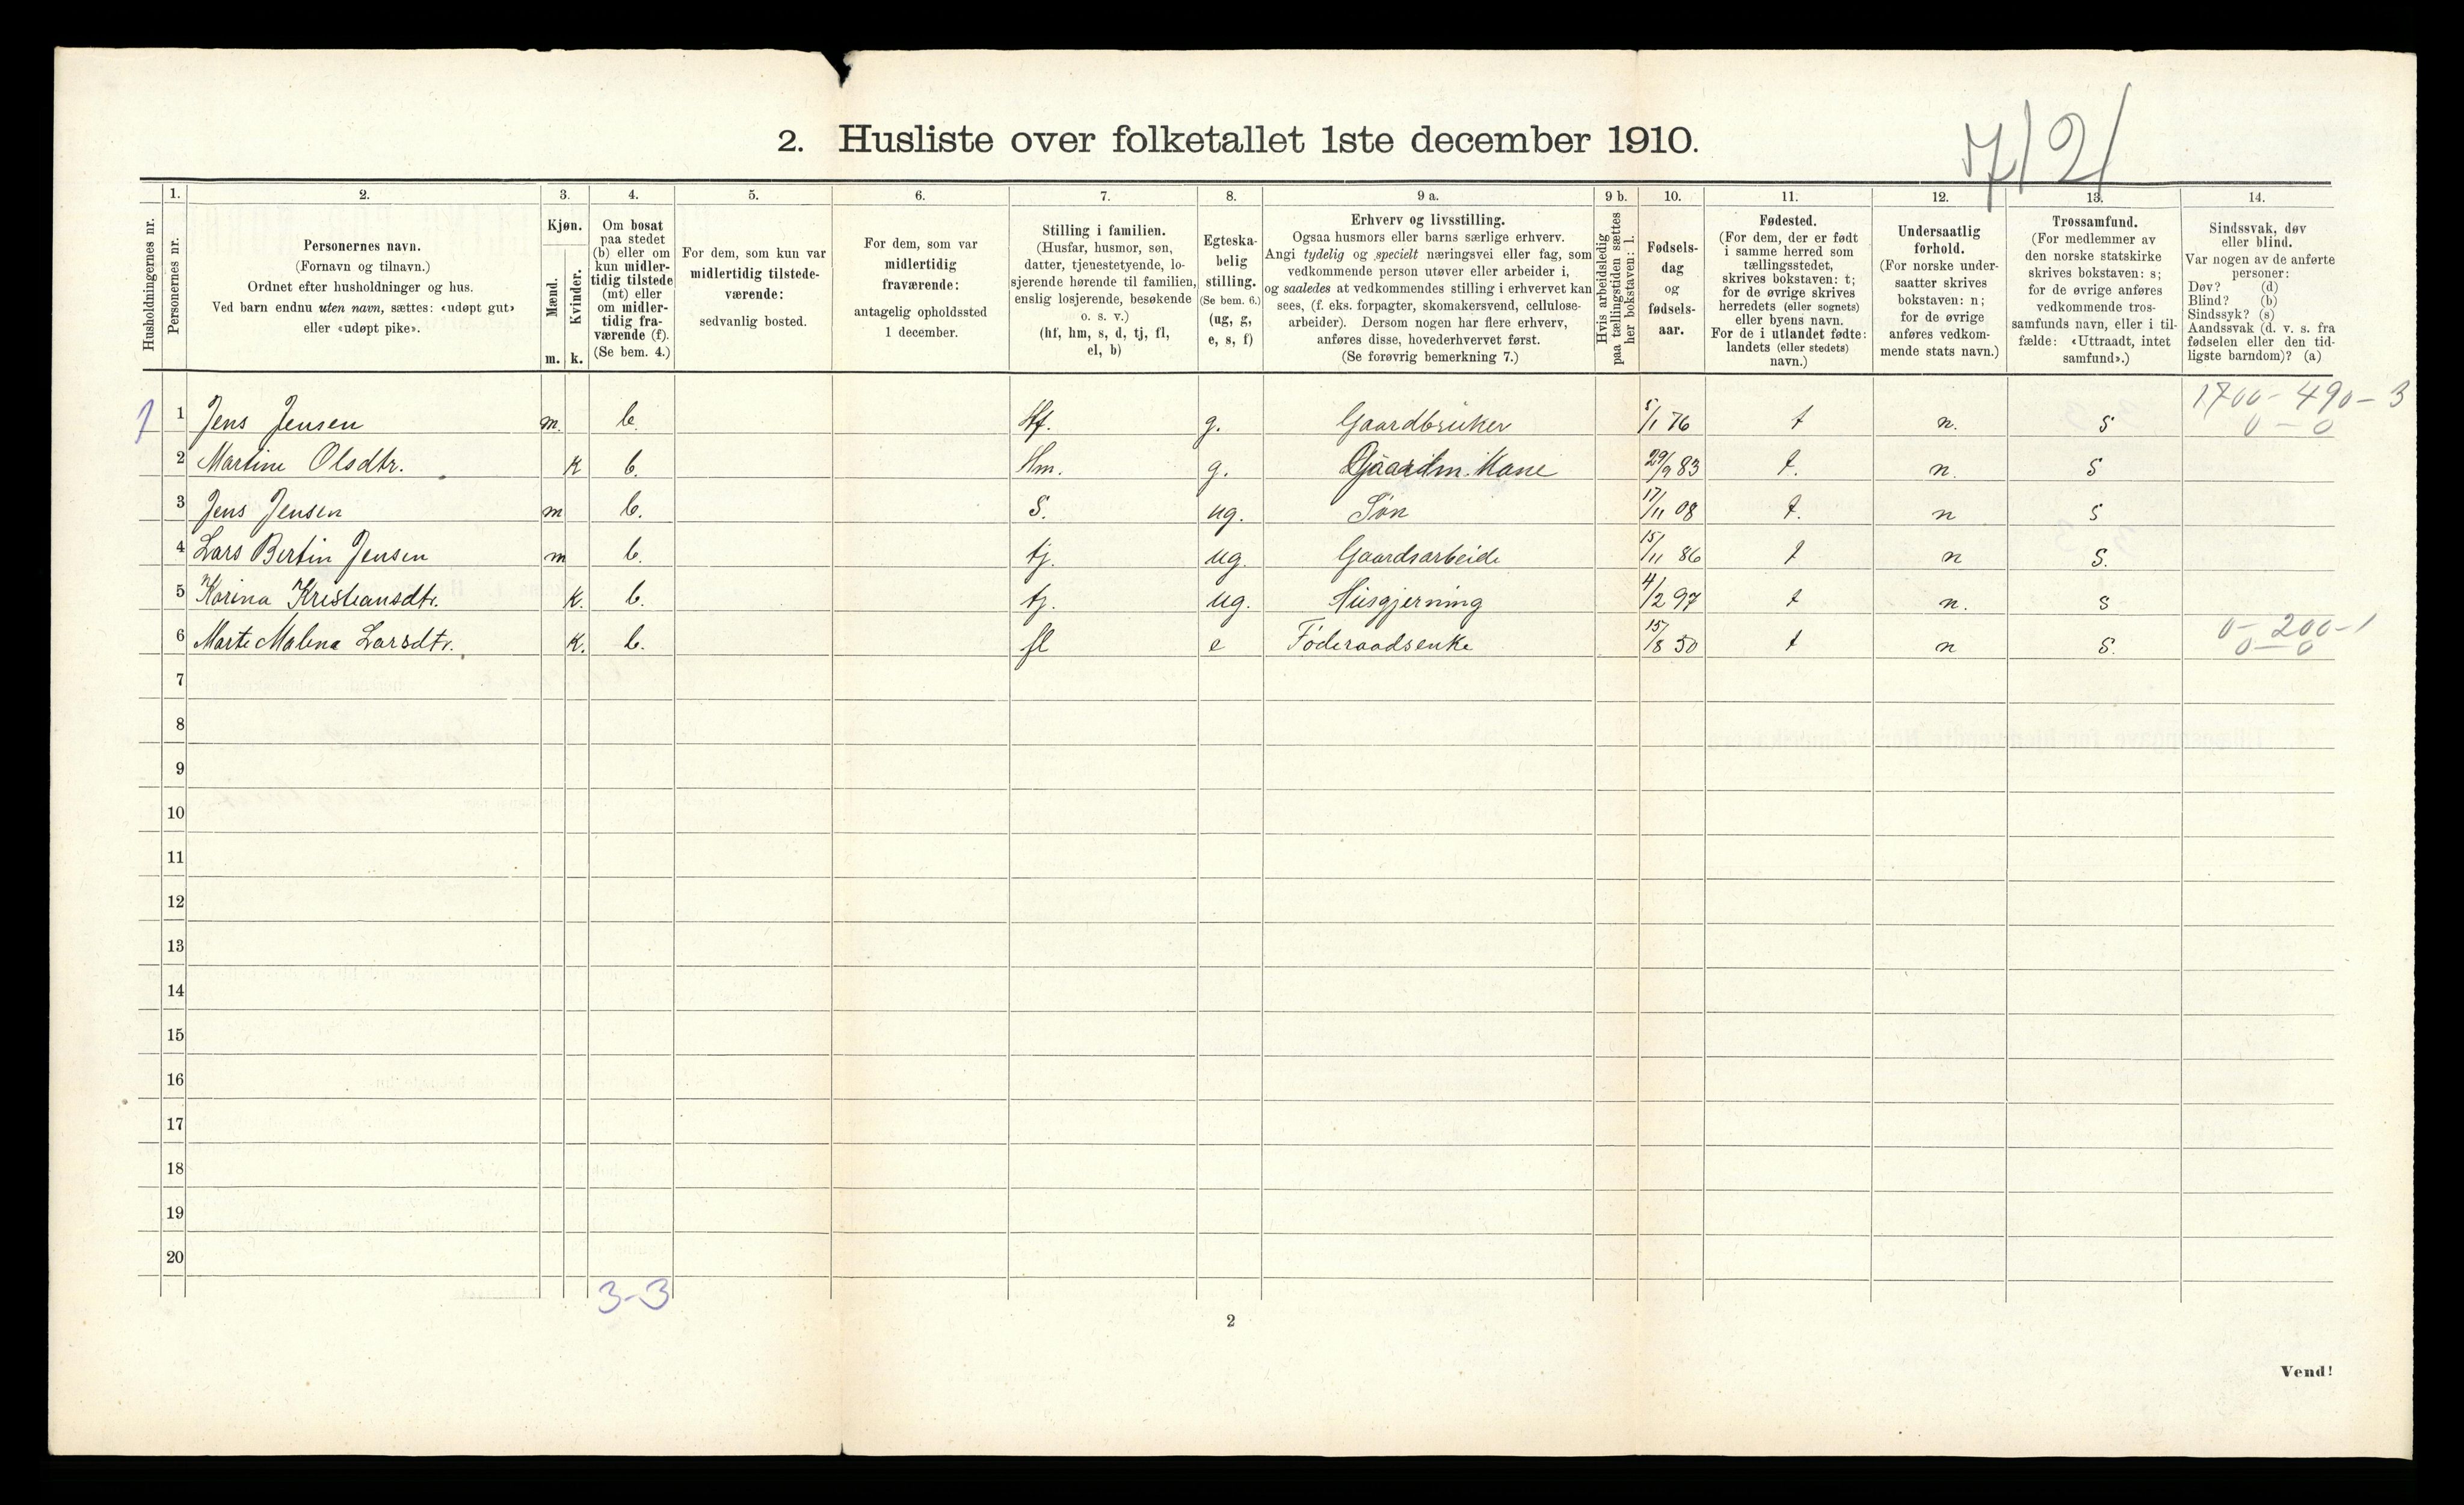 2. Husliste over folketallet 1ste december 1910.
7/2/
Husholdningernes nr.
1.
Personernes nr.
2.
Personernes navn.
(Fornavn og tilnavn.)
Ordnet efter husholdninger og hus.
Ved barn endnu uten navn, sættes: «udøpt gut»
eller «udøpt pike».
3.
Kjøn.
Mænd.
Kvinder.
m. k.
4.
Om bosat
paa stedet
(b) eller om
kun midler-
tidig tilstede
(mt) eller
om midler-
tidig fra-
værende (f).
(Se bem. 4.)
5.
For dem, som kun var
midlertidig tilstede-
værende:
sedvanlig bosted.
6.
For dem, som var
midlertidig
fraværende:
antagelig opholdssted
1 december.
7.
Stilling i familien.
(Husfar, husmor, søn,
datter, tjenestetyende, lo-
sjerende hørende til familien,
enslig losjerende, besøkende
o. s. v.)
(hf, hm, s, d, tj, fl,
el, b)
8.
Egteska-
belig
stilling.
(Se bem. 6.)
(ug, g,
e, s, f)
9 a.
Erhverv og livsstilling.
Ogsaa husmors eller barns særlige erhverv.
Angi tydelig og specielt næringsvei eller fag, som
vedkommende person utøver eller arbeider i,
og saaledes at vedkommendes stilling i erhvervet kan
sees, (f. eks. forpagter, skomakersvend, cellulose-
arbeider). Dersom nogen har flere erhverv,
anføres disse, hovederhvervet først.
(Se forøvrig bemerkning 7.)
9 b.
Hvis arbeidsledig
paa tællingstiden sættes
her bokstaven: l.
10.
Fødsels-
dag
og
fødsels-
aar.
11.
Fødested.
(For dem, der er født
i samme herred som
tællingsstedet,
skrives bokstaven: t;
for de øvrige skrives
herredets (eller sognets)
eller byens navn.
For de i utlandet fødte:
landets (eller stedets)
navn.)
12.
Undersaatlig
forhold.
(For norske under-
saatter skrives
bokstaven: n;
for de øvrige
anføres vedkom-
mende stats navn.)
13.
Trossamfund.
(For medlemmer av
den norske statskirke
skrives bokstaven: s;
for de øvrige anføres
vedkommende tros-
samfunds navn, eller i til-
fælde: «Uttraadt, intet
samfund».)
14.
Sindssvak, døv
eller blind.
Var nogen av de anførte
personer:
Døv? (d)
Blind? (b)
Sindssyk? (s)
Aandssvak (d. v. s. fra
fødselen eller den tid-
ligste barndom)? (a)
1700- 490-3
1 1 Jens Jensen m. b. Hf. g. Gaardbruker 5/1 76 t n. s 0-0
2 Martine Olsdtr. K b. Hm. g. Gaardm. Kone 29/9 83 t. n. s
3 Jens Jensen m b. S. ug. Søn 17/11 08 t. n s
4 Lars Bertin Jensen m b. tj. ug. Gaardsarbeide 15/11 86 t n s.
5 Karina Kristiansdtr. K. b. tj. ug. Husgjerning 4/2 97 t n. s
0- 200-1
6 Marte Malena Larsdtr. K. b. fl e Føderaadsenke 15/8 50 t n s. 0-0
7
8
9
10
11
12
13
14
15
16
17
18
19
20
3-3
2
Vend!